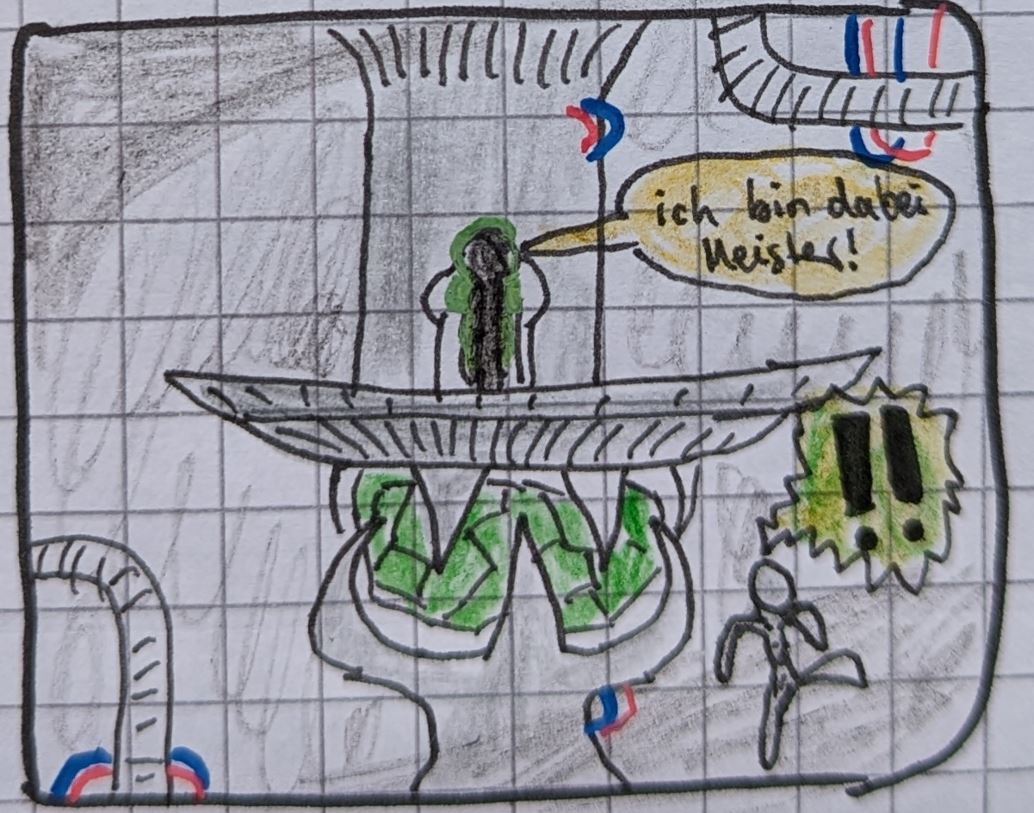 ich bin dabei
Meister!
!!